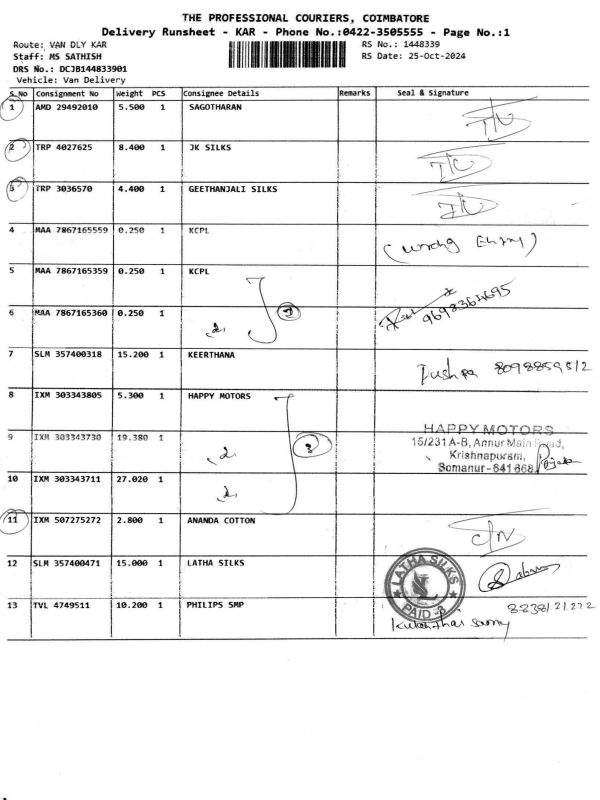 THE PROFESSIONAL COURIERS, COIMBATORE
Delivery Runsheet - KAR - Phone No.:0422-3505555 - Page No.:1
Route: VAN DLY KAR
RS No.: 1448339
Staff: MS SATHISH
RS Date: 25-Oct-2024
DRS No.: DCJB144833901
Vehicle: Van Delivery
S.No Consignment No Weight PCS Consignee Details Remarks Seal & Signature
1 AMD 29492010 5.500 1 SAGOTHARAN
2 TRP 4027625 8.400 1 JK SILKS
3 TRP 3036570 4.400 1 GEETHANJALI SILKS
4 MAA 7867165559 0.250 1 KCPL
5 MAA 7867165359 0.250 1 KCPL
6 MAA 7867165360 0.250 1
9698364695
7 SLM 357400318 15.200 1 KEERTHANA
Pushpa 8098859512
8 IXM 303343805 5.300 1 HAPPY MOTORS
HAPPY MOTORS
9 IXM 303343730 19.380 1 3
15/231 A-B, Annur Main Road,
Krishnapuram,
Somanur-641 668.
10 IXM 303343711 27.020 1
11 IXM 507275272 2.800 1 ANANDA COTTON
12 SLM 357400471 15.000 1 LATHA SILKS
LATHA SILKS
PAID
13 TVL 4749511 10.200 1 PHILIPS SMP